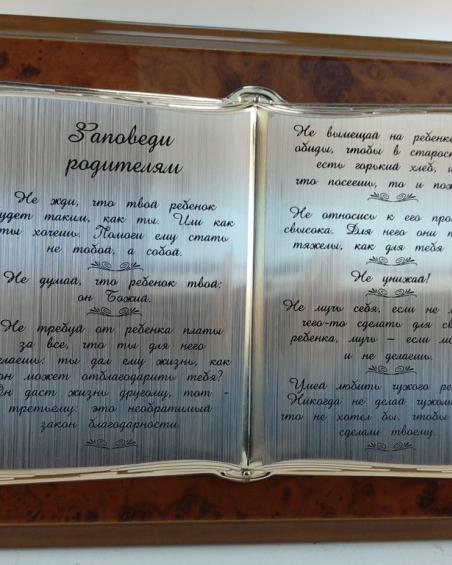 Заповеди
родителям
Не жди, что твой ребенок
будет таким, как ты. Или как
ты хочешь. Помоги ему стать
не тобой, а собой.
Не думай, что ребенок твой:
он Божий.
Не требуй от ребенка платы
за все, что ты для него
делаешь: ты дал ему жизнь, как
он может отблагодарить тебя?
Он даст жизнь другому, тот -
третьему: это необратимый
закон благодарности.
Не вымещай на ребенке
обиды, чтобы в старос
есть горький хлеб,
что посеешь, то и
Не относись к его про
свысока. Для него они
тяжелы, как для тебя
Не унижай!
Не мучь себя, если не
чего-то сделать для
ребенка, мучь - если
и не делаешь.
Умей любить чужого
Никогда не делай чужом
что не хотел бы, чтобы
сделали твоему.